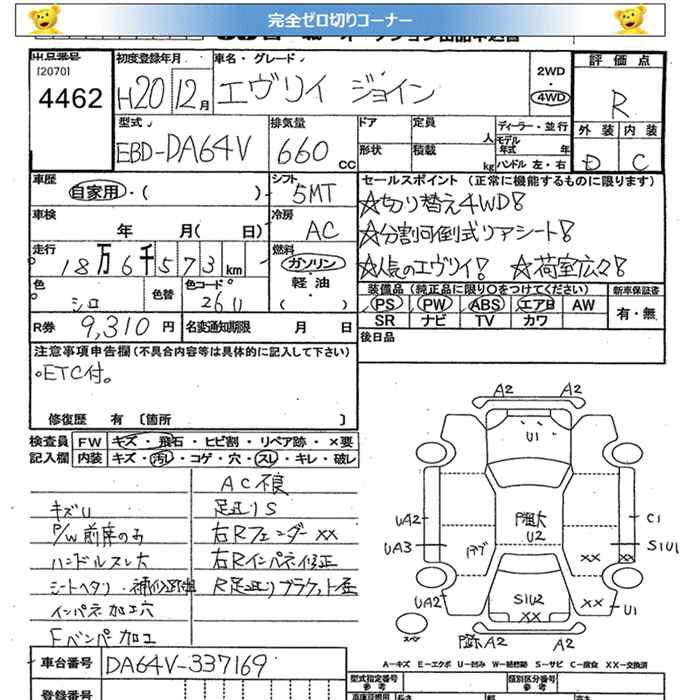 完全ゼロ切りコーナー
出品番号 初度登録年月 車名・グレード 評価点
[2070]
4462 H20 12月 エヴリイ ジョイン 2WD ・ 4WD R
型式 排気量 ドア 定員 人 ディーラー・並行 外装 内装
EBD-DA64V 660 CC 形状 積載 kg モデル年式 年 ハンドル 左・右 D C
車歴 自家用・( ) シフト 5MT セールスポイント (正常に機能するものに限ります)
車検 年 月( 日) 冷房 AC ☆切り替え4WD!
☆分割可倒式リアシート!
走行 18万6千573km 燃料 ガソリン・軽油・( ) ☆人気のエヴリイ! ☆荷室広々!
色 シロ 色替 色コード 26U 装備品 (純正品に限り○をつけてください) 新車保証書
PS PW ABS エアB AW 有・無
SR ナビ TV カワ
R券 9,310円 名変通知期限 月 日 後日品
注意事項申告欄 (不具合内容等は具体的に記入して下さい)
。ETC付。
修復歴 有 〔箇所 〕
検査員 FW キズ・飛石・ヒビ割・リペア跡・×要
記入欄 内装 キズ・汚レ・コゲ・穴・スレ・キレ・破レ
AC不良
キズU 足廻りS
P/W前席のみ 右Rフェンダー××
ハンドルスレ大 右Rインパネ修正
シートヘタリ・
インパネ加工穴
Fバンパー加工
A2 A2
U1
UA2 C1
U2
UA3 S1U1
×× ××
S1U2
UA2 ×× ×× U1
スペア
A2 A2
A－キズ E－エクボ U－凹み W－補修跡 S－サビ C－腐食 XX－交換済
車台番号 DA64V-337169 型式指定番号 参考 類別区分番号 参考
登録番号 長さ 幅 高さ